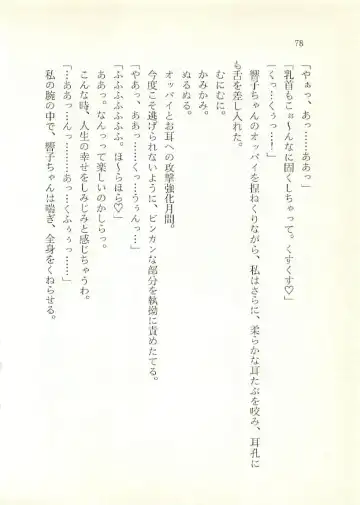 78
「やぁっ、あっ……ああっ」
「乳首もこぉ〜んなに固くしちゃって。くすくす♡」
「くっ…くぅっ…！」
響子ちゃんのオッパイを捏ねくりながら、私はさらに、柔らかな耳たぶを咬み、耳孔に
も舌を差し入れた。
むにむに。
かみかみ。
ぬるぬる。
オッパイとお耳への攻撃強化月間。
今度こそ逃げられないように、ビンカンな部分を執拗に責めたてる。
「やあっ、ああっ……くっ…うぅんっ…」
「ふふふふふふふ。ほ〜らほら♡」
ああっ。なんって楽しいのかしらっ。
こんな時、人生の幸せをしみじみと感じちゃうわ。
「…ああっ…んっ………あっ…くふぅぅっ……」
私の腕の中で、響子ちゃんは喘ぎ、全身をくねらせる。